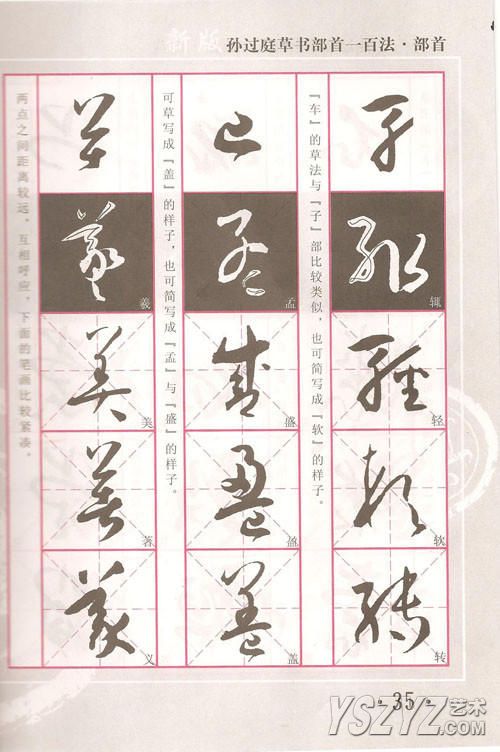 新版 孙过庭草书部首一百法·部首
『车』的草法与『子』部比较类似，也可简写成『软』的样子。
辄
轻
软
转
可草写成『盖』的样子，也可简写成『孟』与『盛』的样子。
孟
盛
盈
盖
两点之间距离较远，互相呼应，下面的笔画比较紧凑。
羲
美
著
义
·35·
YSZYZ艺术
.com